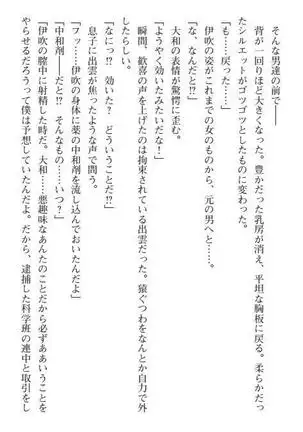 そんな男達の前で――
背が一回りほど大きくなった。豊かだった乳房が消え、平坦な胸板に戻る。柔らかだっ
たシルエットがゴツゴツとしたものに変わった。
「も……戻った……」
伊吹の姿がこれまでの女のものから、元の男へと……。
「な、なんだと⁉」
大和の表情が驚愕に歪む。
「ようやく効いたみたいだな！」
瞬間、歓喜の声を上げたのは拘束されている出雲だった。猿ぐつわをなんとか自力で外
したらしい。
「なにっ？　効いた？　どういうことだ⁉」
息子に出雲が焦ったような声で問う。
「フッ……伊吹の身体に薬の中和剤を流し込んでおいたんだよ」
「中和剤……だと⁉　そんなもの……いつ？」
「伊吹の膣中に射精した時だ。大和……悪趣味なあんたのことだから必ずああいうことを
やらせるだろうって僕は予想していたんだよ。だから、逮捕した科学班の連中と取引をし